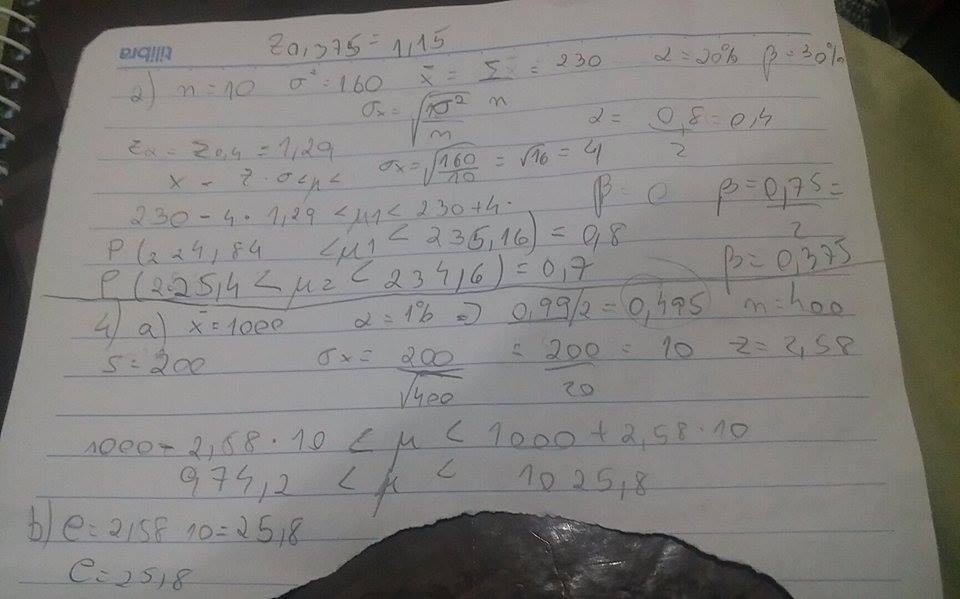 tilibra
Z0,375 = 1,15
2) n=10 σ²=160 x̄ = Σ = 230 α=20% β=30%
σx = √σ²/n n
α = 0,8/2 = 0,4
Zα = Z0,4 = 1,29 σx = √160/10 = √16 = 4
x - Z · σ < μ <
β = 0 β = 0,75/2 =
230 - 4 · 1,29 < μ1 < 230 + 4 ·
P (224,84 < μ1 < 235,16) = 0,8
β = 0,375
P (225,4 < μ2 < 234,6) = 0,7
4) a) x̄ = 1000 α = 1% => 0,99/2 = 0,495 n = 400
S = 200 σx = 200/√400 = 200/20 = 10 Z = 2,58
1000 - 2,58 · 10 < μ < 1000 + 2,58 · 10
974,2 < μ < 1025,8
b) e = 2,58 10 = 25,8
e = 25,8